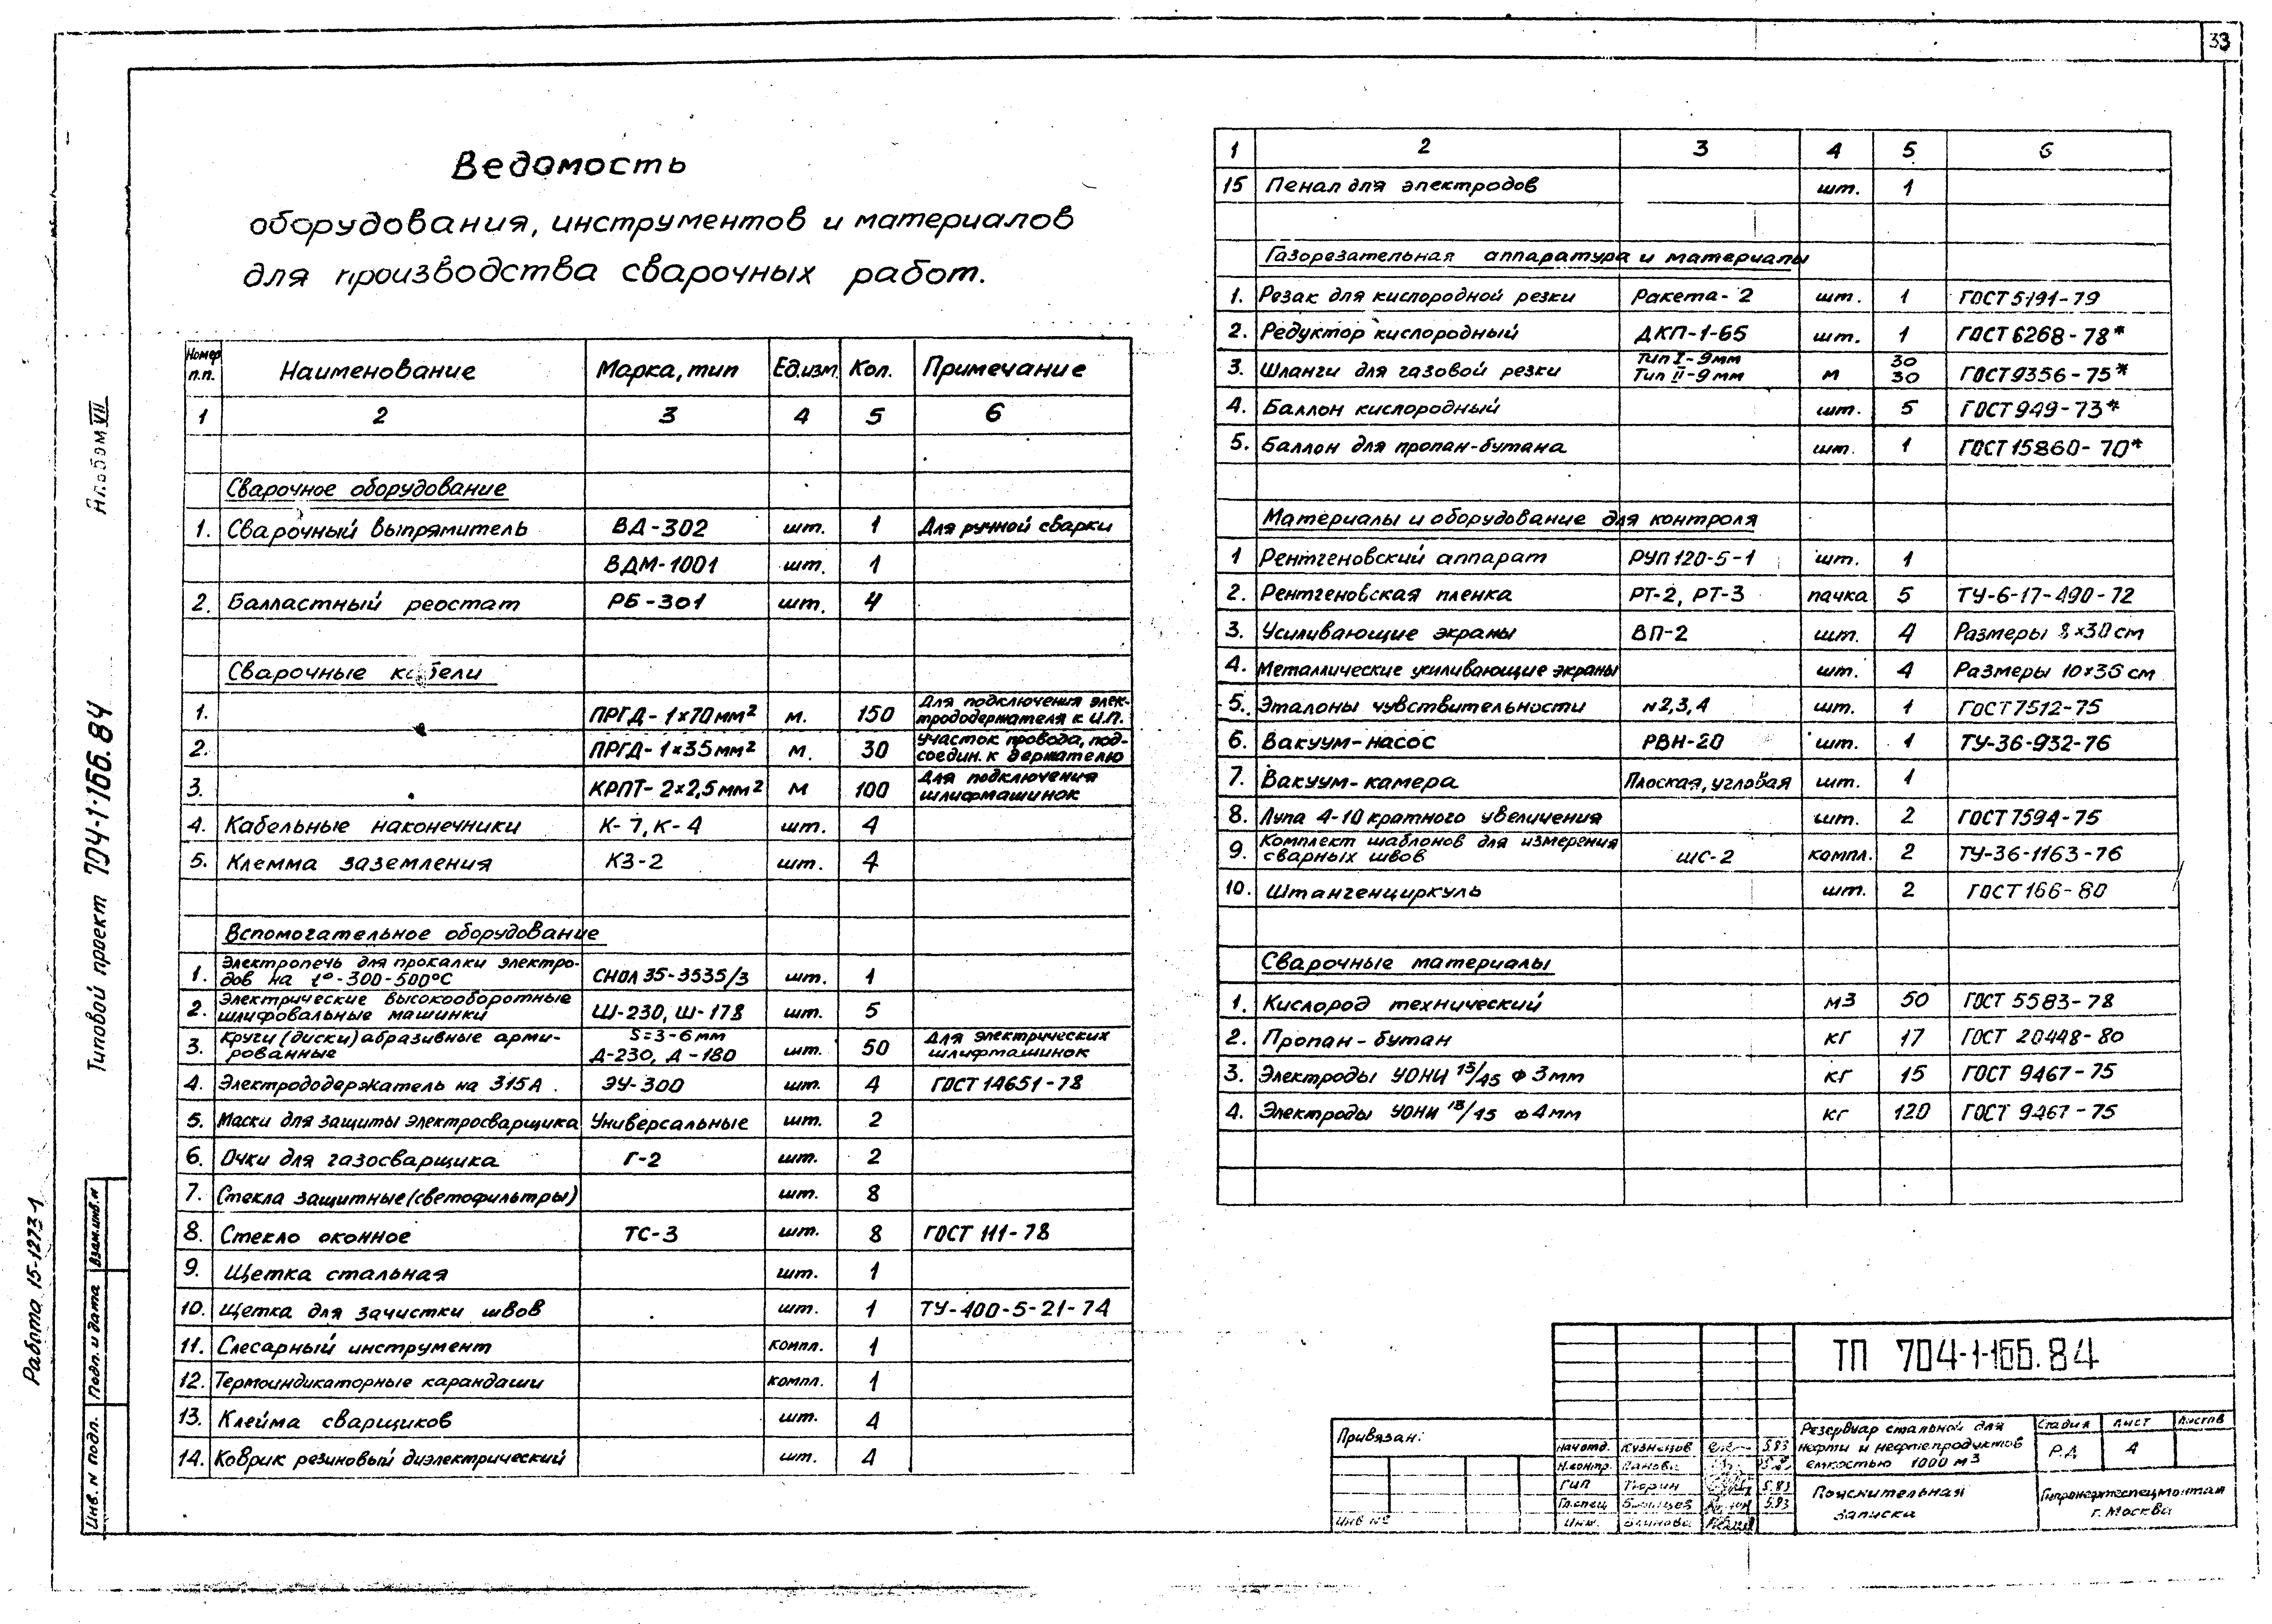 33
Ведомость
оборудования, инструментов и материалов
для производства сварочных работ.
Номер п.п. Наименование Марка, тип Ед.изм. Кол. Примечание
1 2 3 4 5 6
Сварочное оборудование
1. Сварочный выпрямитель ВД-302 шт. 1 Для ручной сварки
ВДМ-1001 шт. 1
2. Балластный реостат РБ-301 шт. 4
Сварочные кабели
1. ПРГД-1×70мм² м. 150 Для подключения элек-
трододержателя к И.П.
2. ПРГД-1×35мм² м. 30 участок провода, под-
соедин. к держателю
3. КРПТ-2×2,5мм² м 100 Для подключения
шлифмашинок
4. Кабельные наконечники К-7, К-4 шт. 4
5. Клемма заземления КЗ-2 шт. 4
Вспомогательное оборудование
1. Электропечь для прокалки электро-
дов на t°-300-500°С СНОЛ 35-3535/3 шт. 1
2. Электрические высокооборотные
шлифовальные машинки Ш-230, Ш-178 шт. 5
3. Круги (диски) абразивные арми-
рованные S=3-6мм
Д-230, Д-180 шт. 50 Для электрических
шлифмашинок
4. Электрододержатель на 315А. ЭУ-300 шт. 4 ГОСТ 14651-78
5. Маски для защиты электросварщика Универсальные шт. 2
6. Очки для газосварщика Г-2 шт. 2
7. Стекла защитные (светофильтры) шт. 8
8. Стекло оконное ТС-3 шт. 8 ГОСТ 111-78
9. Щетка стальная шт. 1
10. Щетка для зачистки швов шт. 1 ТУ-400-5-21-74
11. Слесарный инструмент компл. 1
12. Термоиндикаторные карандаши компл. 1
13. Клейма сварщиков шт. 4
14. Коврик резиновый диэлектрический шт. 4
1 2 3 4 5 6
15 Пенал для электродов шт. 1
Газорезательная аппаратура и материалы
1. Резак для кислородной резки Ракета-2 шт. 1 ГОСТ 5191-79
2. Редуктор кислородный ДКП-1-65 шт. 1 ГОСТ 6268-78*
3. Шланги для газовой резки Тип I-9мм
Тип II-9мм м 30
30 ГОСТ 9356-75*
4. Баллон кислородный шт. 5 ГОСТ 949-73*
5. Баллон для пропан-бутана шт. 1 ГОСТ 15860-70*
Материалы и оборудование для контроля
1 Рентгеновский аппарат РУП 120-5-1 шт. 1
2. Рентгеновская пленка РТ-2, РТ-3 пачка 5 ТУ-6-17-490-72
3. Усиливающие экраны ВП-2 шт. 4 Размеры 8×30см
4. Металлические усиливающие экраны шт. 4 Размеры 10×36 см
5. Эталоны чувствительности N2,3,4 шт. 1 ГОСТ 7512-75
6. Вакуум-насос РВН-20 шт. 1 ТУ-36-932-76
7. Вакуум-камера Плоская, угловая шт. 1
8. Лупа 4-10 кратного увеличения шт. 2 ГОСТ 7594-75
9. Комплект шаблонов для измерения
сварных швов ШС-2 компл. 2 ТУ-36-1163-76
10. Штангенциркуль шт. 2 ГОСТ 166-80
Сварочные материалы
1. Кислород технический м3 50 ГОСТ 5583-78
2. Пропан-бутан кг 17 ГОСТ 20448-80
3. Электроды УОНИ 13/45 Ф 3мм кг 15 ГОСТ 9467-75
4. Электроды УОНИ 13/45 Ф 4мм кг 120 ГОСТ 9467-75
Альбом VII
Типовой проект 704-1-166.84
Работа 15-1273-1
Взам.инв.N
Подп. и дата
Инв. N подл.
ТП 704-1-166.84
Привязан:
Инв №
Нач отд. Кузнецов 5.83
Н.контр. Панова
ГИП Тюрин 5.83
Гл.спец 5.83
Инж. Блинова
Резервуар стальной для
нефти и нефтепродуктов
емкостью 1000 м3
Стадия Лист Листов
Р.Д 4
Пояснительная
записка
Гипронефтеспецмонтаж
г. Москва